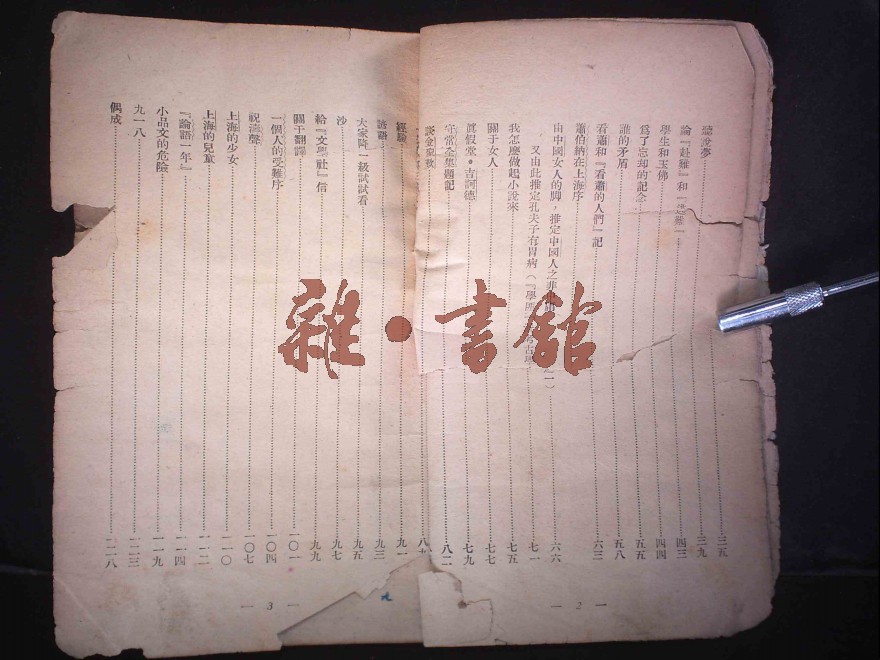 聽說夢……三五
論『赴難』和『逃難』……三九
學生和玉佛……四三
爲了忘却的記念……四四
誰的矛盾……五五
看蕭和『看蕭的人們』記……五八
蕭伯納在上海序……六三
由中國女人的脚，推定中國人之非
又由此推定孔夫子有胃病（『學……六六
我怎麼做起小說來……七一
關于女人……七五
眞假堂·吉訶德……七七
守常全集題記……七九
談金聖歎……八二
經驗……九一
諺語……九三
大家降一級試試看……九五
沙……九七
給『文學社』信……九九
關于翻譯……一〇一
一個人的受難序……一〇四
祝濤聲……一〇七
上海的少女……一一〇
上海的兒童……一一二
『論語一年』……一一四
小品文的危險……一一九
九一八……一二三
偶成……一二八
— 2 —
— 3 —
雜·書館